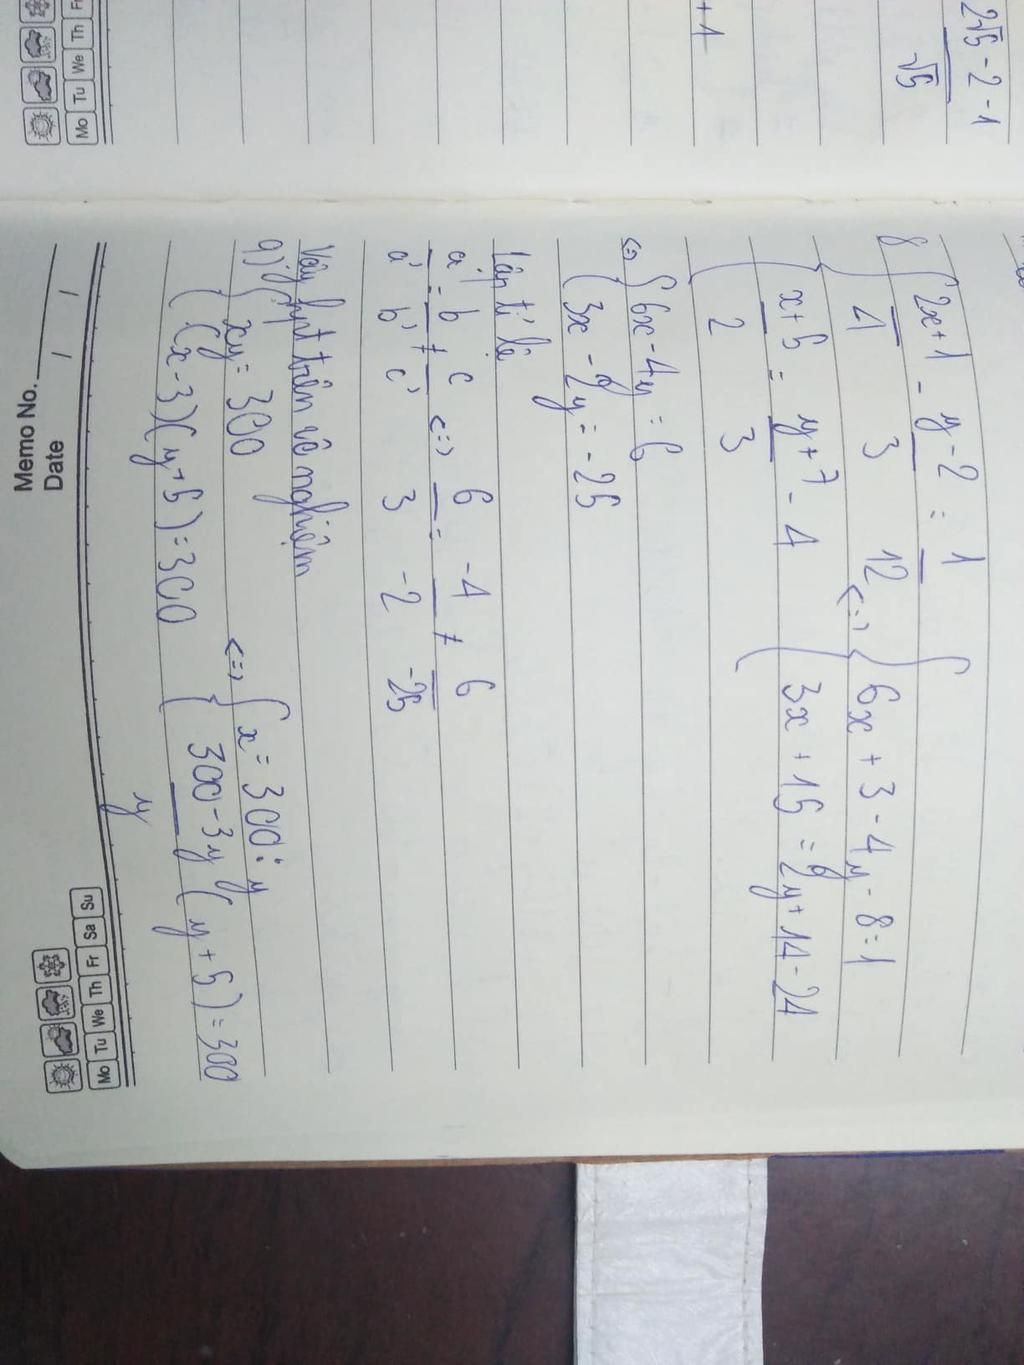 2√5 - 2 - 1
√5
+ 1
Mo Tu We Th Fr
8 { (2x+1)/4 - (y-2)/3 = 1/12
(x+5)/2 = (y+7)/3 - 4
<=> { 6x + 3 - 4y - 8 = 1
3x + 15 = 2y + 14 - 24
<=> { 6x - 4y = 6
3x - 2y = -25
Lập tỉ lệ
a/a' = b/b' ≠ c/c' <=> 6/3 = -4/-2 ≠ 6/-25
Vậy hpt trên vô nghiệm
9) { xy = 300
(x - 3)(y + 5) = 300
<=> { x = 300 : y
(300 - 3y)/y (y + 5) = 300
Memo No.
Date / /
Mo Tu We Th Fr Sa Su